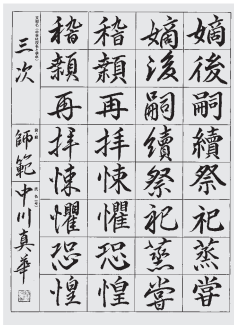 嫡後嗣續祭祀蒸嘗
嫡後嗣續祭祀蒸嘗
稽顙再拝悚懼恐惶
稽顙再拝悚懼恐惶
三次 師範 中川真華